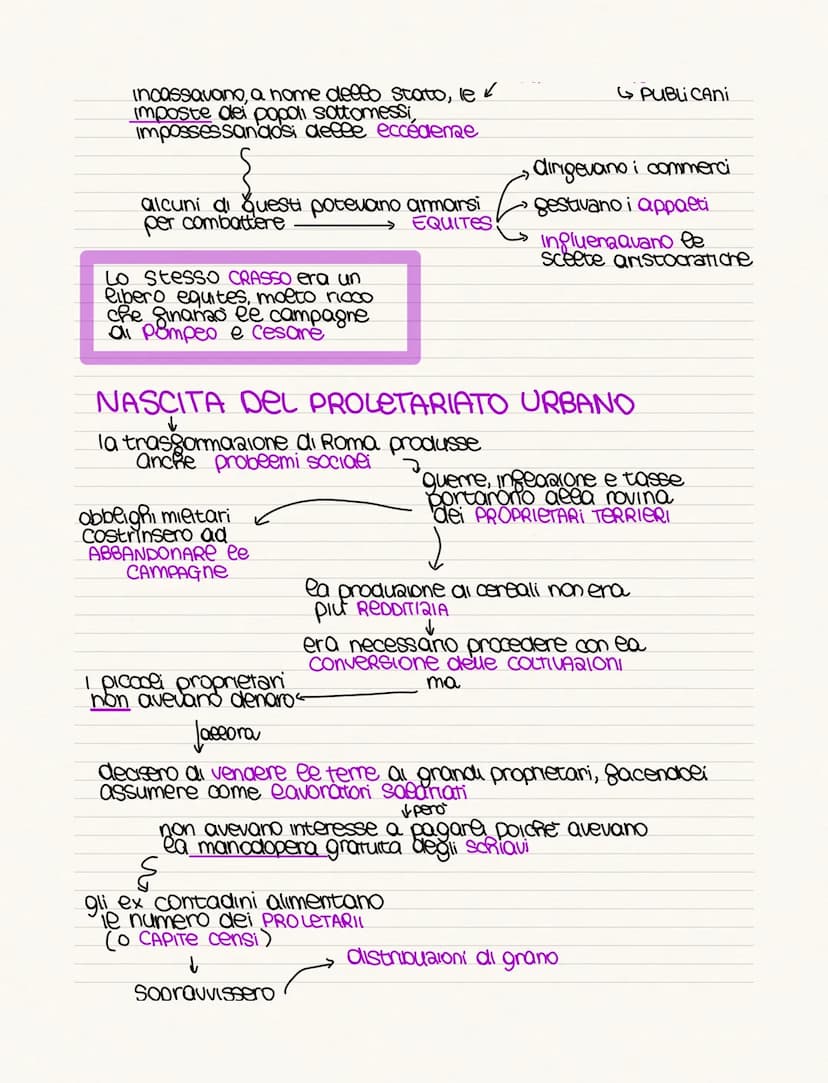 incassavano, a nome dello stato, le
↳ PUBLICANI
imposte dei popoli sottomessi,
impossessandosi delle eccedenze
alcuni di questi potevano armarsi
per combattere → EQUITES
dirigevano i commerci
gestivano i appalti
influenzavano le
scelte aristocratiche
Lo stesso CRASSO era un
libero equites, molto ricco
che finanziò le campagne
di Pompeo e Cesare
NASCITA DEL PROLETARIATO URBANO
la trasformazione di Roma produsse
anche problemi sociali
guerre, inflazione e tasse
portarono alla rovina
dei PROPRIETARI TERRIERI
obblighi militari
costrinsero ad
ABBANDONARE le
CAMPAGNE
la produzione di cereali non era
più REDDITIZIA
era necessario procedere con la
CONVERSIONE delle COLTIVAZIONI
ma
i piccoli proprietari
non avevano denaro
allora
decisero di vendere le terre ai grandi proprietari, facendoli
assumere come lavoratori salariati
però
non avevano interesse a pagare poiché avevano
la manodopera gratuita degli schiavi
gli ex contadini alimentano
le numero dei PROLETARII
(o CAPITE CENSI)
distribuzioni di grano
sopravvissero